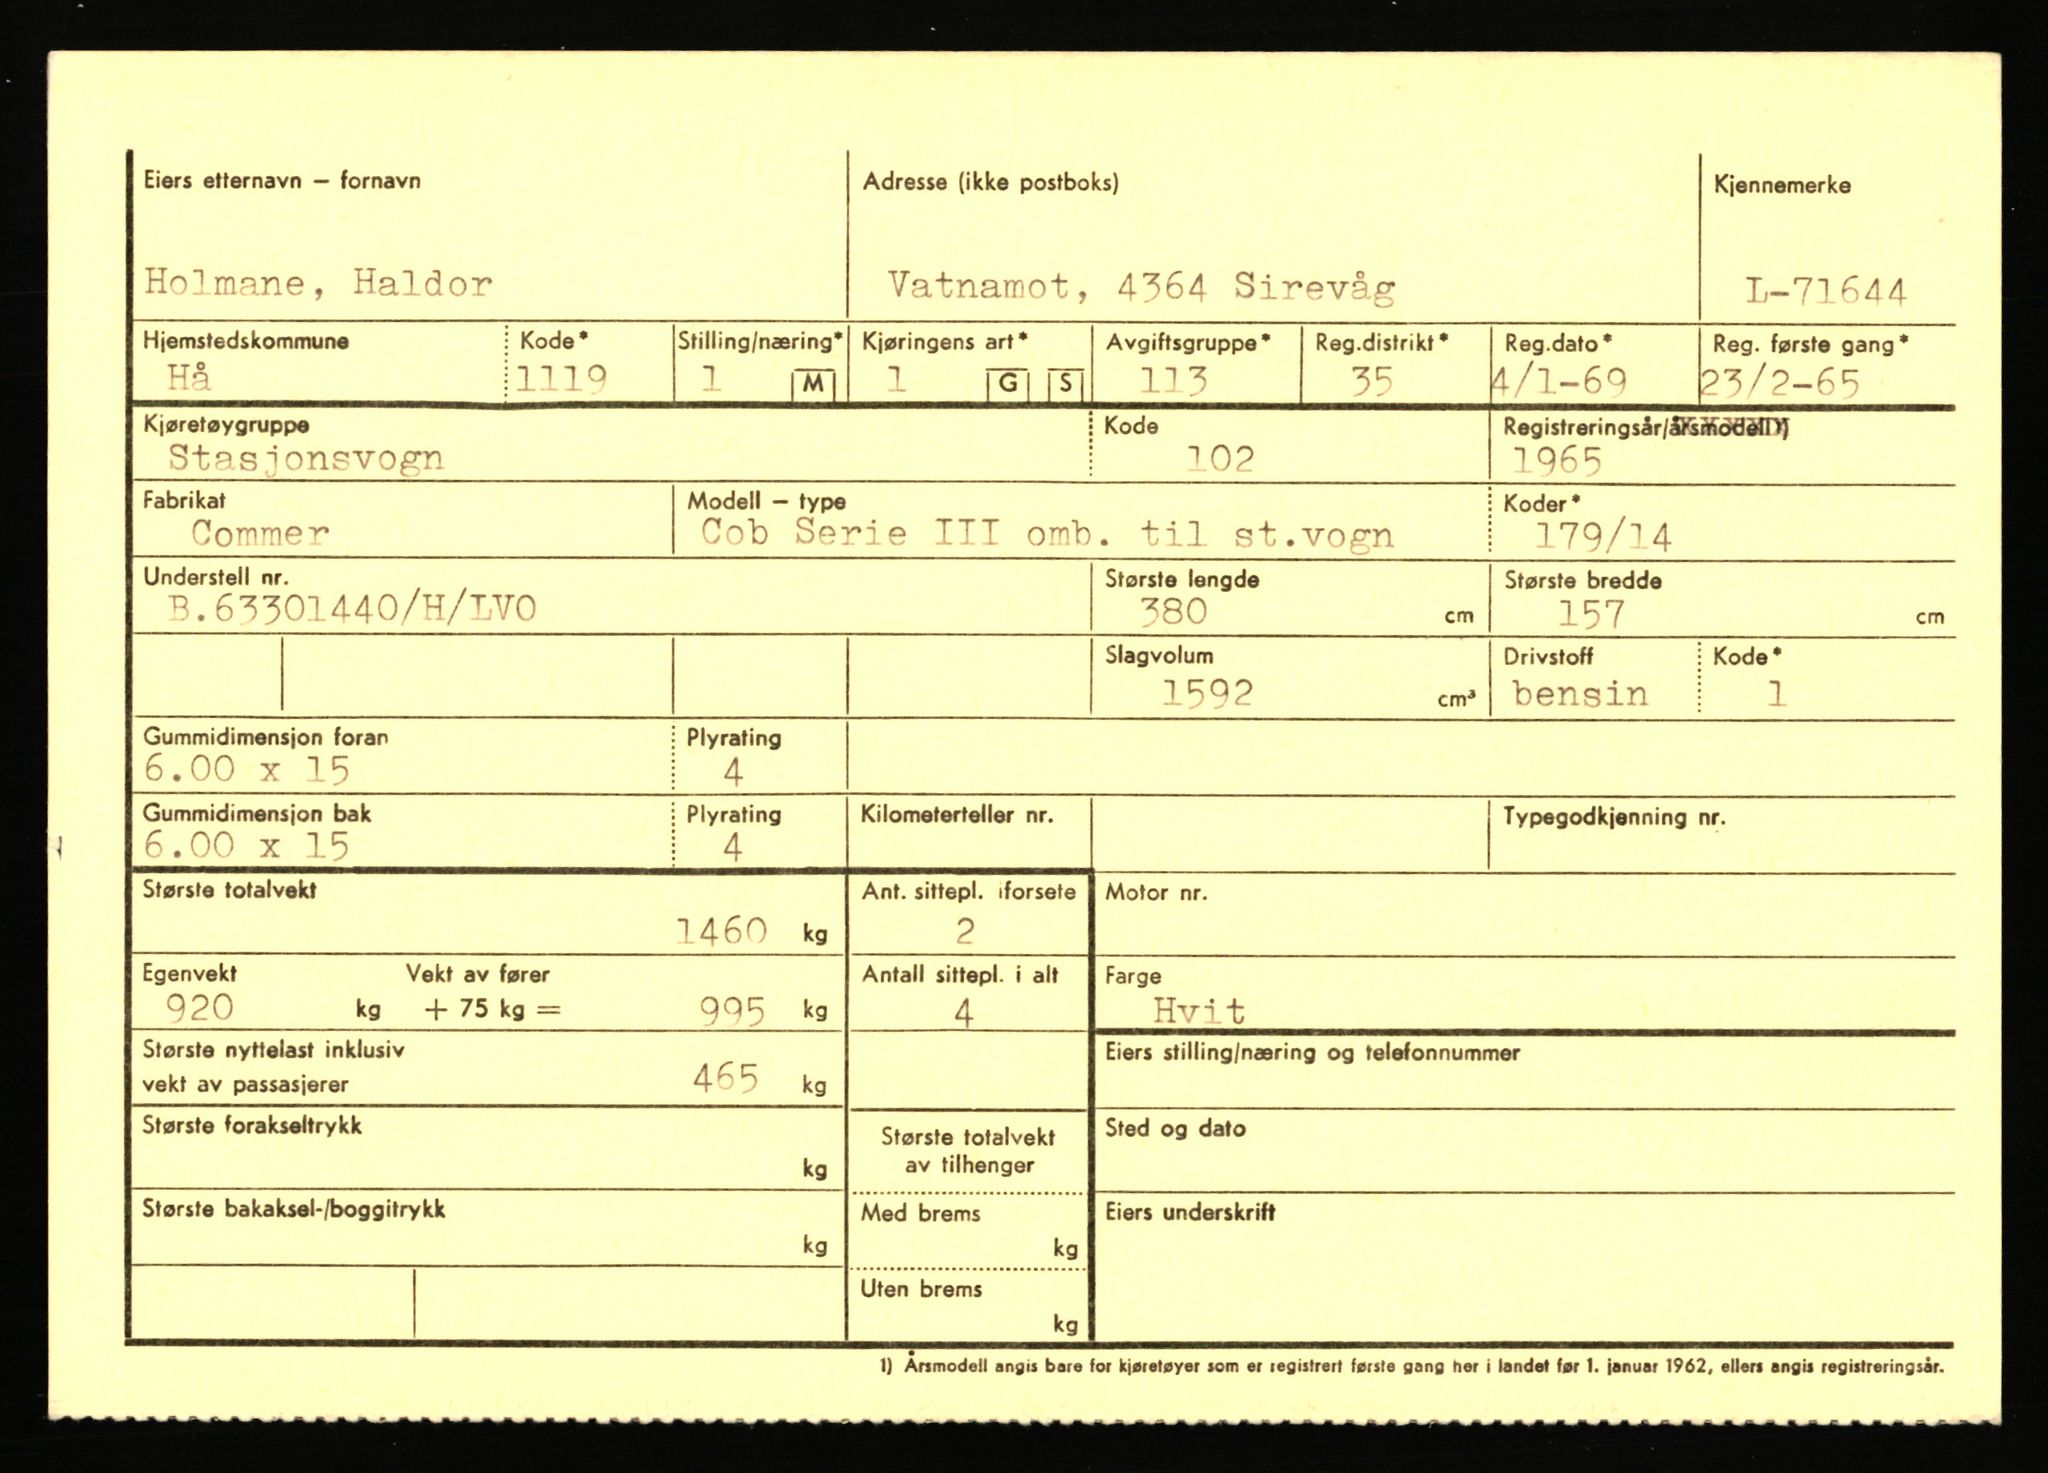 Eiers etternavn – fornavn Adresse (ikke postboks) Kjennemerke
Holmane, Haldor Vatnamot, 4364 Sirevåg L-71644
Hjemstedskommune Kode* Stilling/næring* Kjøringens art* Avgiftsgruppe* Reg.distrikt* Reg.dato* Reg. første gang*
Hå 1119 1 M 1 G S 113 35 4/1-69 23/2-65
Kjøretøygruppe Kode Registreringsår/årsmodell 1)
Stasjonsvogn 102 1965
Fabrikat Modell – type Koder*
Commer Cob Serie III omb. til st.vogn 179/14
Understell nr. Største lengde Største bredde
B.63301440/H/LVO 380 cm 157 cm
Slagvolum Drivstoff Kode*
1592 cm³ bensin 1
Gummidimensjon foran Plyrating
6.00 x 15 4
Gummidimensjon bak Plyrating Kilometerteller nr. Typegodkjenning nr.
6.00 x 15 4
Største totalvekt Ant. sittepl. iforsete Motor nr.
1460 kg 2
Egenvekt Vekt av fører Antall sittepl. i alt Farge
920 kg + 75 kg = 995 kg 4 Hvit
Største nyttelast inklusiv Eiers stilling/næring og telefonnummer
vekt av passasjerer 465 kg
Største forakseltrykk Største totalvekt Sted og dato
kg av tilhenger
Største bakaksel-/boggitrykk Med brems Eiers underskrift
kg kg
Uten brems
kg
1) Årsmodell angis bare for kjøretøyer som er registrert første gang her i landet før 1. januar 1962, ellers angis registreringsår.